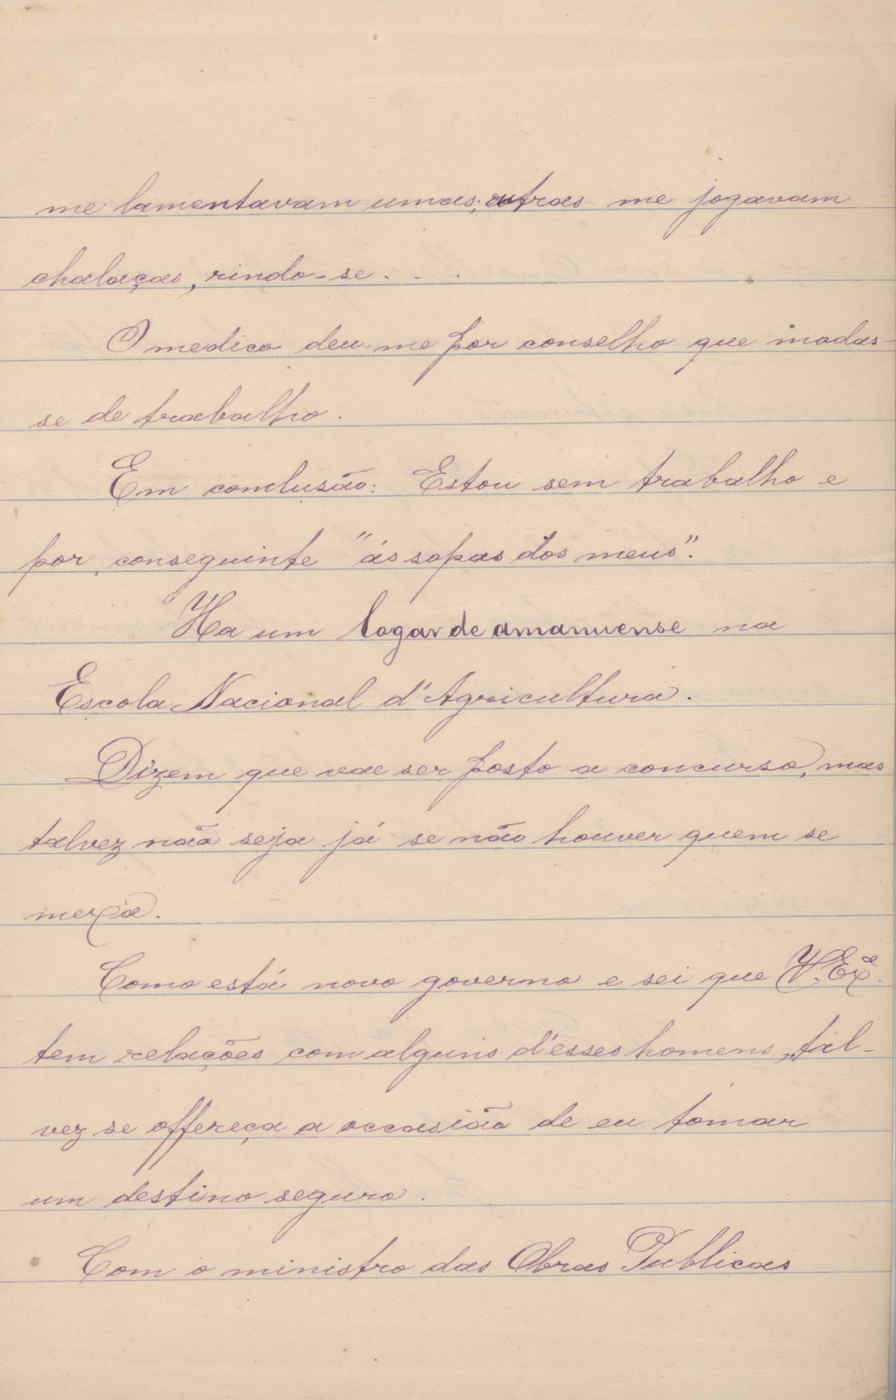 me lamentavam umas; outras me jogavam
chalaças, rindo-se. . .
O medico deu-me por conselho que mudas-
se de trabalho.
Em conclusão: Estou sem trabalho e
por conseguinte "ás sopas dos meus".
Ha um logar de amanuense na
Escola Nacional d'Agricultura.
Dizem que vae ser posto a concurso, mas
talvez não seja já se não houver quem se
mexa.
Como está novo governo e sei que V. Exª.
tem relações com alguns d'esses homens, tal-
vez se offereça a occasião de eu tomar
um destino seguro.
Com o ministro das Obras Publicas